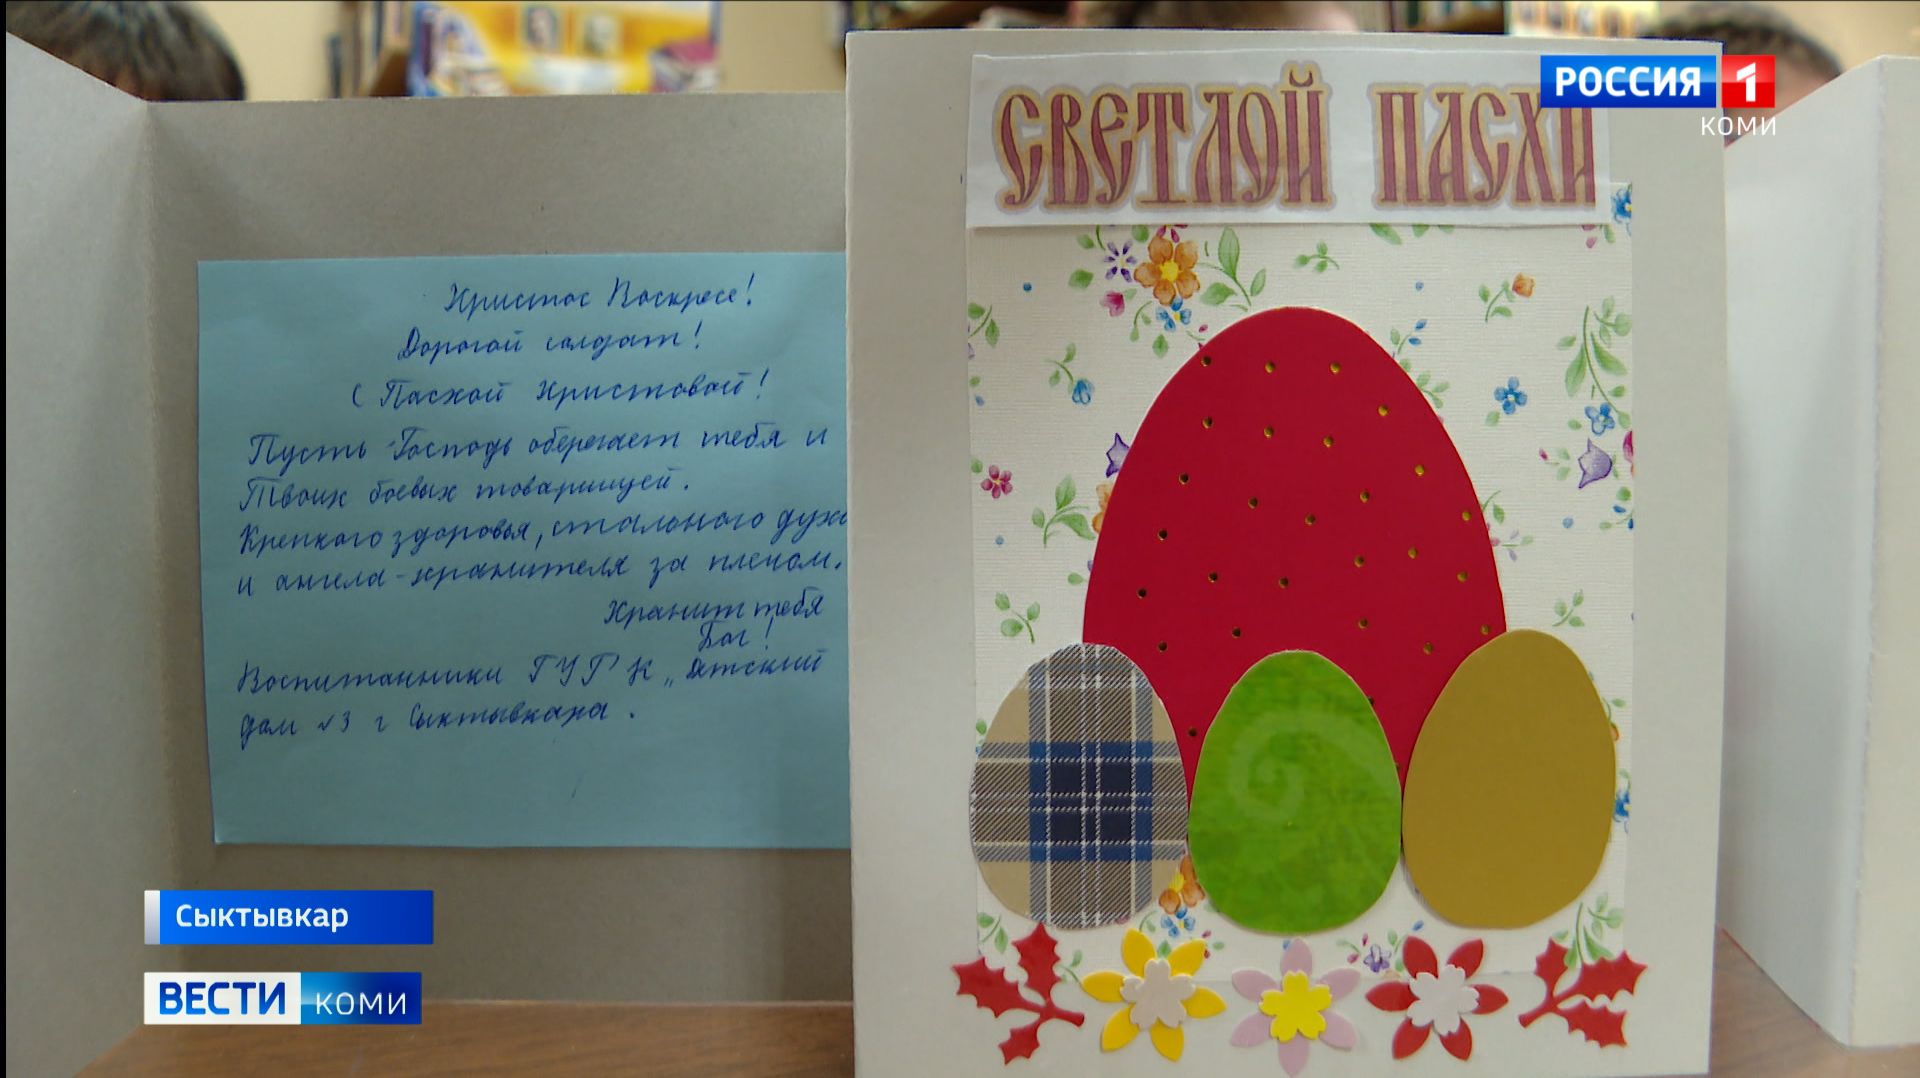 Христос Воскресе!
Дорогой солдат!
С Пасхой Христовой!
Пусть Господь оберегает тебя и
Твоих боевых товарищей.
Крепкого здоровья, стального духа
и ангела-хранителя за плечом.
Хранит тебя
Бог!
Воспитанники ГУ РК „Детский
дом №3 г Сыктывкара.
СВЕТЛОЙ ПАСХИ
РОССИЯ 1
КОМИ
Сыктывкар
ВЕСТИ КОМИ